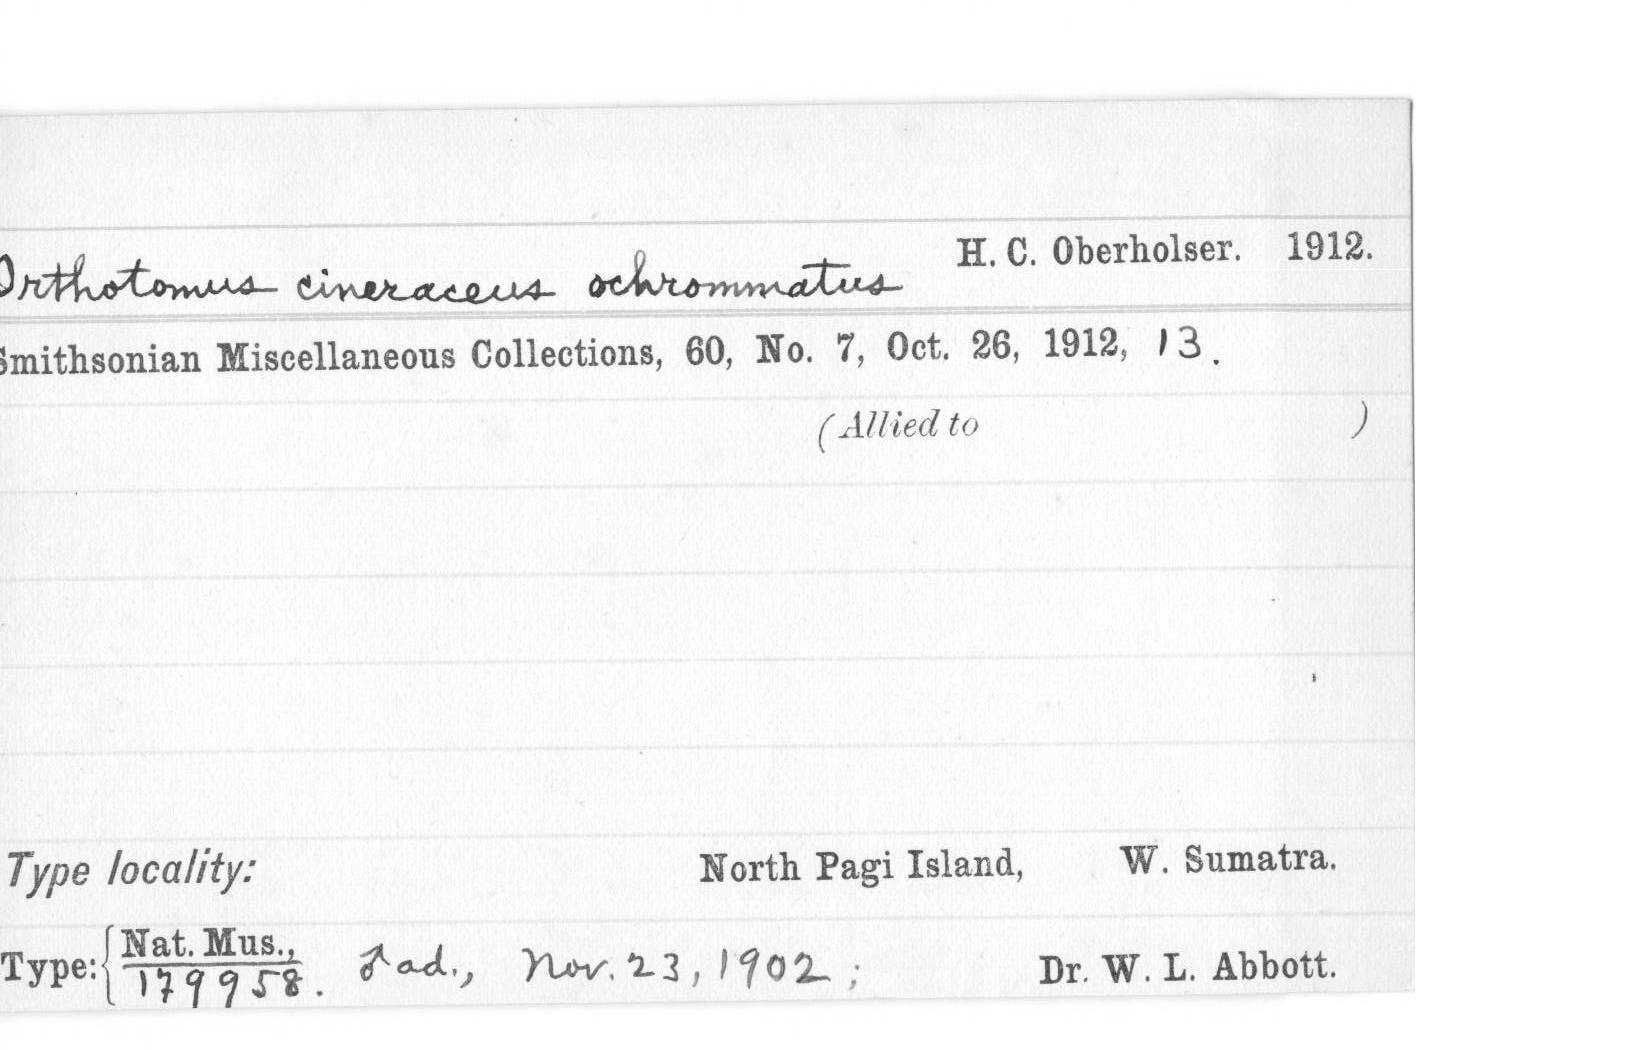 Orthotomus cineraceus ochrommatus H. C. Oberholser. 1912.
Smithsonian Miscellaneous Collections, 60, No. 7, Oct. 26, 1912, 13.
(Allied to )
Type locality: North Pagi Island, W. Sumatra.
Type: { Nat. Mus., 179958. ♂ ad., Nov. 23, 1902; Dr. W. L. Abbott.